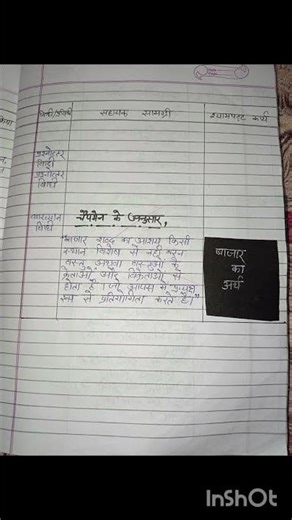 विधि/प्रविधि
सहायक सामग्री
श्यामपट्ट कार्य
प्रश्नोत्तर
विधि
प्रश्नोत्तर
विधि
व्याख्यान
विधि
चैपमैन के अनुसार,
"बाजार शब्द का आशय किसी
स्थान विशेष से नहीं वरन
वस्तु अथवा वस्तुओं के
क्रेताओं और विक्रेताओं से
होता है। जो आपस में प्रत्यक्ष
रूप से प्रतियोगिता करते है।"
बाजार
का
अर्थ
InShOt